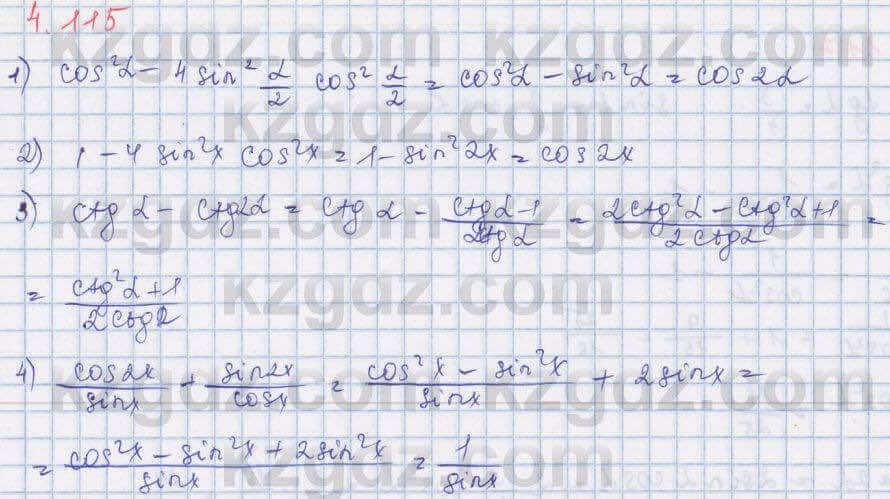 4.115
1) cos²α − 4 sin² α/2 cos² α/2 = cos²α − sin²α = cos2α
2) 1 − 4 sin²x cos²x = 1 − sin²2x = cos2x
3) ctg α − ctg2α = ctg α − (ctgα−1)/(2ctgα) = (2ctg²α − ctg²α+1)/(2ctgα) =
= (ctg²α+1)/(2ctgα)
4) cos2x/sinx + sin2x/cosx = (cos²x − sin²x)/sinx + 2sinx =
= (cos²x − sin²x + 2sin²x)/sinx = 1/sinx
kzgdz.com
kzgdz.com
kzgdz.com
kzgdz.com
kzgdz.com
kzgdz.com